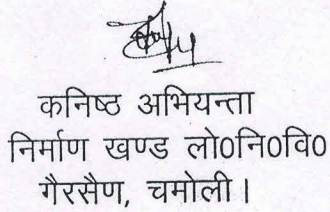 कनिष्ठ अभियन्ता
निर्माण खण्ड लो0नि0वि0
गैरसैण, चमोली।